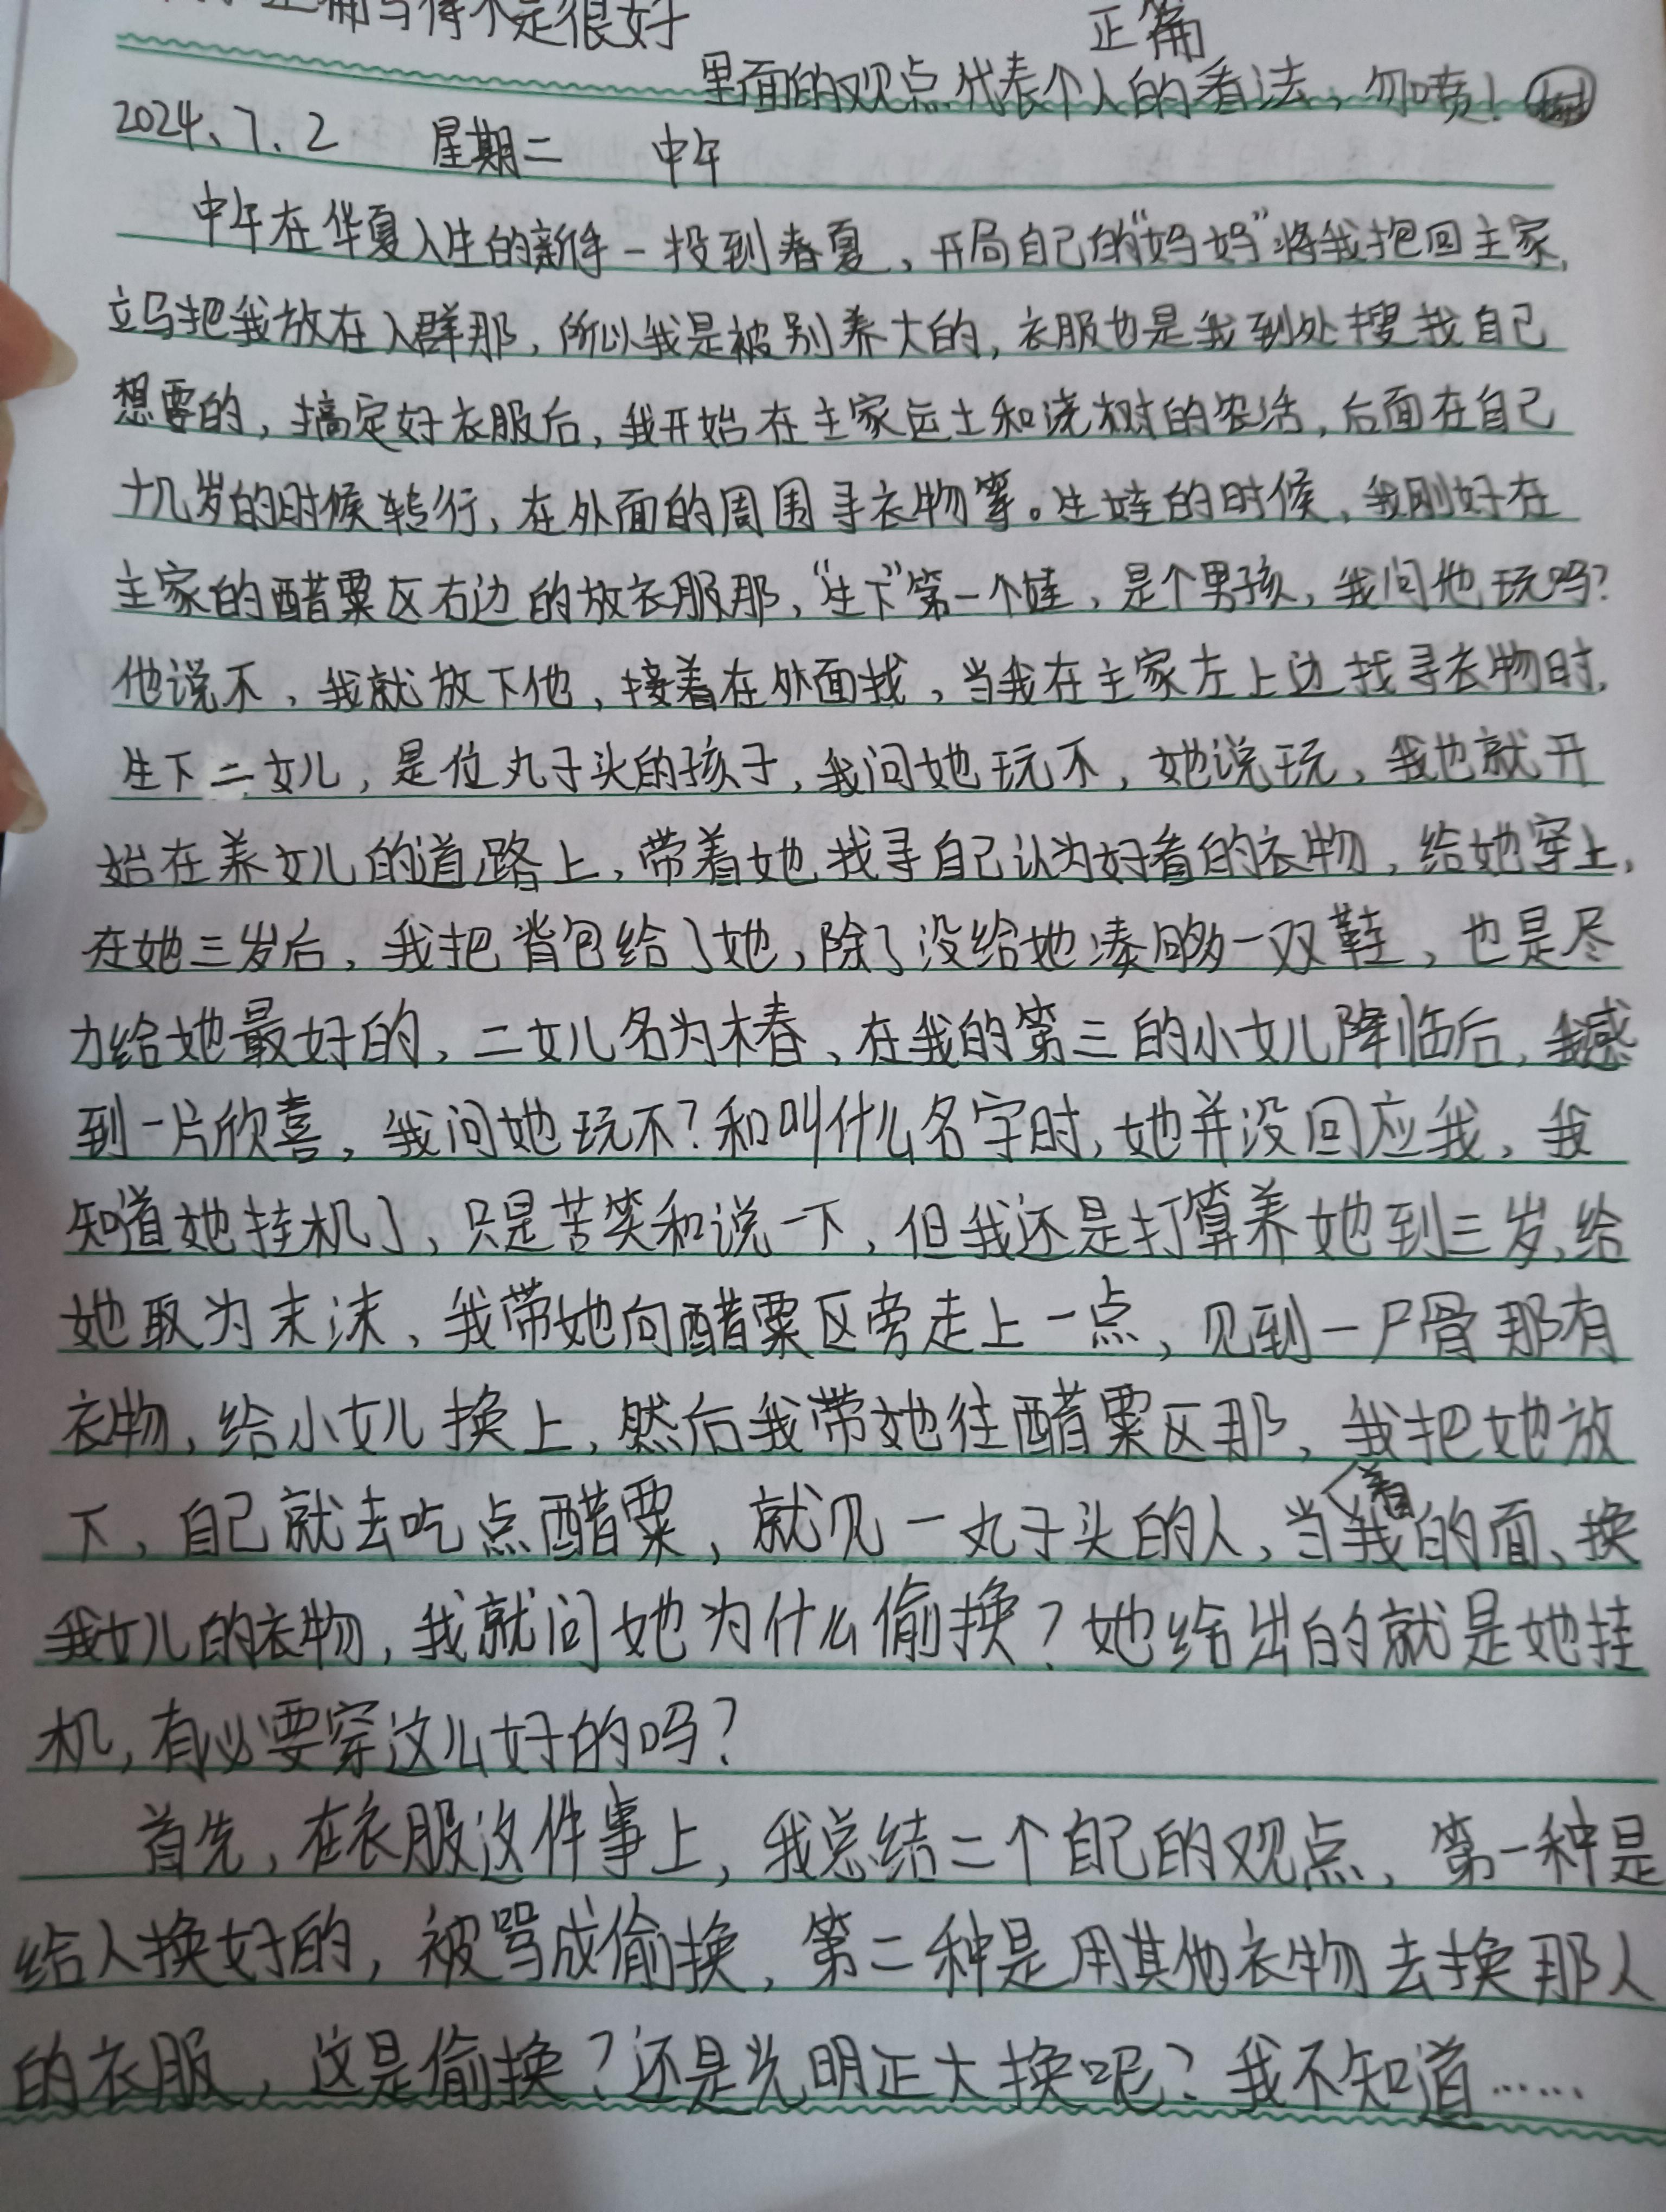 正篇写得不是很好
正篇
里面的观点代表个人的看法，勿喷！
2024、7、2 星期二 中午
中午在华夏人生的新手一投到春夏，开局自己的“妈妈”将我抱回主家，
立马把我放在人群那，所以我是被别养大的，衣服也是我到处搜找自己
想要的，搞定好衣服后，我开始在主家运土和浇树的农活，后面在自己
十几岁的时候转行，在外面的周围寻衣物等。生娃的时候，我刚好在
主家的醋粟区右边的放衣服那，“生下”第一个娃，是个男孩，我问他玩吗？
他说不，我就放下他，接着在外面找，当我在主家左上边找寻衣物时，
生下二女儿，是位丸子头的孩子，我问她玩不，她说玩，我也就开
始在养女儿的道路上，带着她找寻自己认为好看的衣物，给她穿上，
在她三岁后，我把背包给了她，除了没给她凑够一双鞋，也是尽
力给她最好的，二女儿名为椿，在我的第三的小女儿降临后，我感
到一片欣喜，我问她玩不？和叫什么名字时，她并没回应我，我
知道她挂机了，只是苦笑和说一下，但我还是打算养她到三岁，给
她取为末沫，我带她向醋粟区旁走上一点，见到一尸骨那有
衣物，给小女儿换上，然后我带她往醋粟区那，我把她放
下，自己就去吃点醋粟，就见一丸子头的人，当着我的面，换
我女儿的衣物，我就问她为什么偷换？她给出的就是她挂
机，有必要穿这么好的吗？
首先，在衣服这件事上，我总结二个自己的观点，第一种是
给人换好的，被骂成偷换，第二种是用其他衣物去换那人
的衣服，这是偷换？还是光明正大换呢？我不知道……